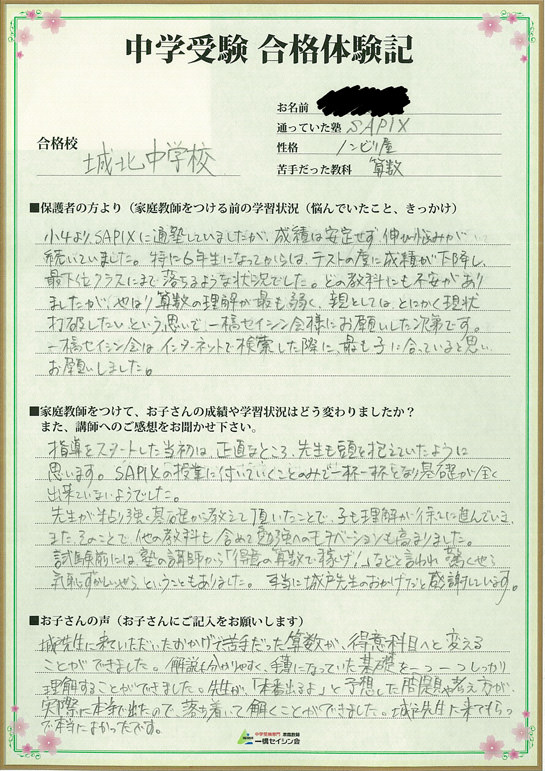 中学受験 合格体験記
お名前
通っていた塾 SAPIX
合格校 城北中学校
性格 ノンビリ屋
苦手だった教科 算数
■保護者の方より（家庭教師をつける前の学習状況（悩んでいたこと、きっかけ）
小4よりSAPIXに通塾していましたが、成績は安定せず、伸び悩みが
続いていました。特に6年生になってからは、テストの度に成績が下降し、
最下位クラスにまで落ちるような状況でした。どの教科にも不安があり
ましたが、やはり算数の理解が最も弱く、親としては、とにかく現状
打破したいという思いで、一橋セイシン会様にお願いした次第です。
一橋セイシン会はインターネットで検索した際に、最も子に合っていると思い、
お願いしました。
■家庭教師をつけて、お子さんの成績や学習状況はどう変わりましたか？
また、講師へのご感想をお聞かせ下さい。
指導をスタートした当初は、正直なところ、先生も頭を抱えていたように
思います。SAPIXの授業に付いていくことのみで一杯一杯となり基礎が全く
出来ていないようでした。
先生が粘り強く基礎から教えて頂いたことで、子も理解が徐々に進んでいき、
また、そのことで、他の教科も含めて勉強へのモチベーションも高まりました。
試験前には、塾の講師から「得意の算数で稼げ！」などと言われ驚くやら
気恥ずかしいやら、ということもありました。本当に城戸先生のおかげだと感謝しています。
■お子さんの声（お子さんにご記入をお願いします）
城戸先生に来ていただいたおかげで苦手だった算数が、得意科目へと変える
ことができました。解説も分かりやすく、手薄になっていた基礎を一つ一つしっかり
理解することができました。先生が、「本番出るよ」と予想した問題や考え方が、
実際に本当で出たので、落ち着いて解くことができました。城戸先生に来てもらっ
て本当によかったです。
中学受験専門 家庭教師
一橋セイシン会